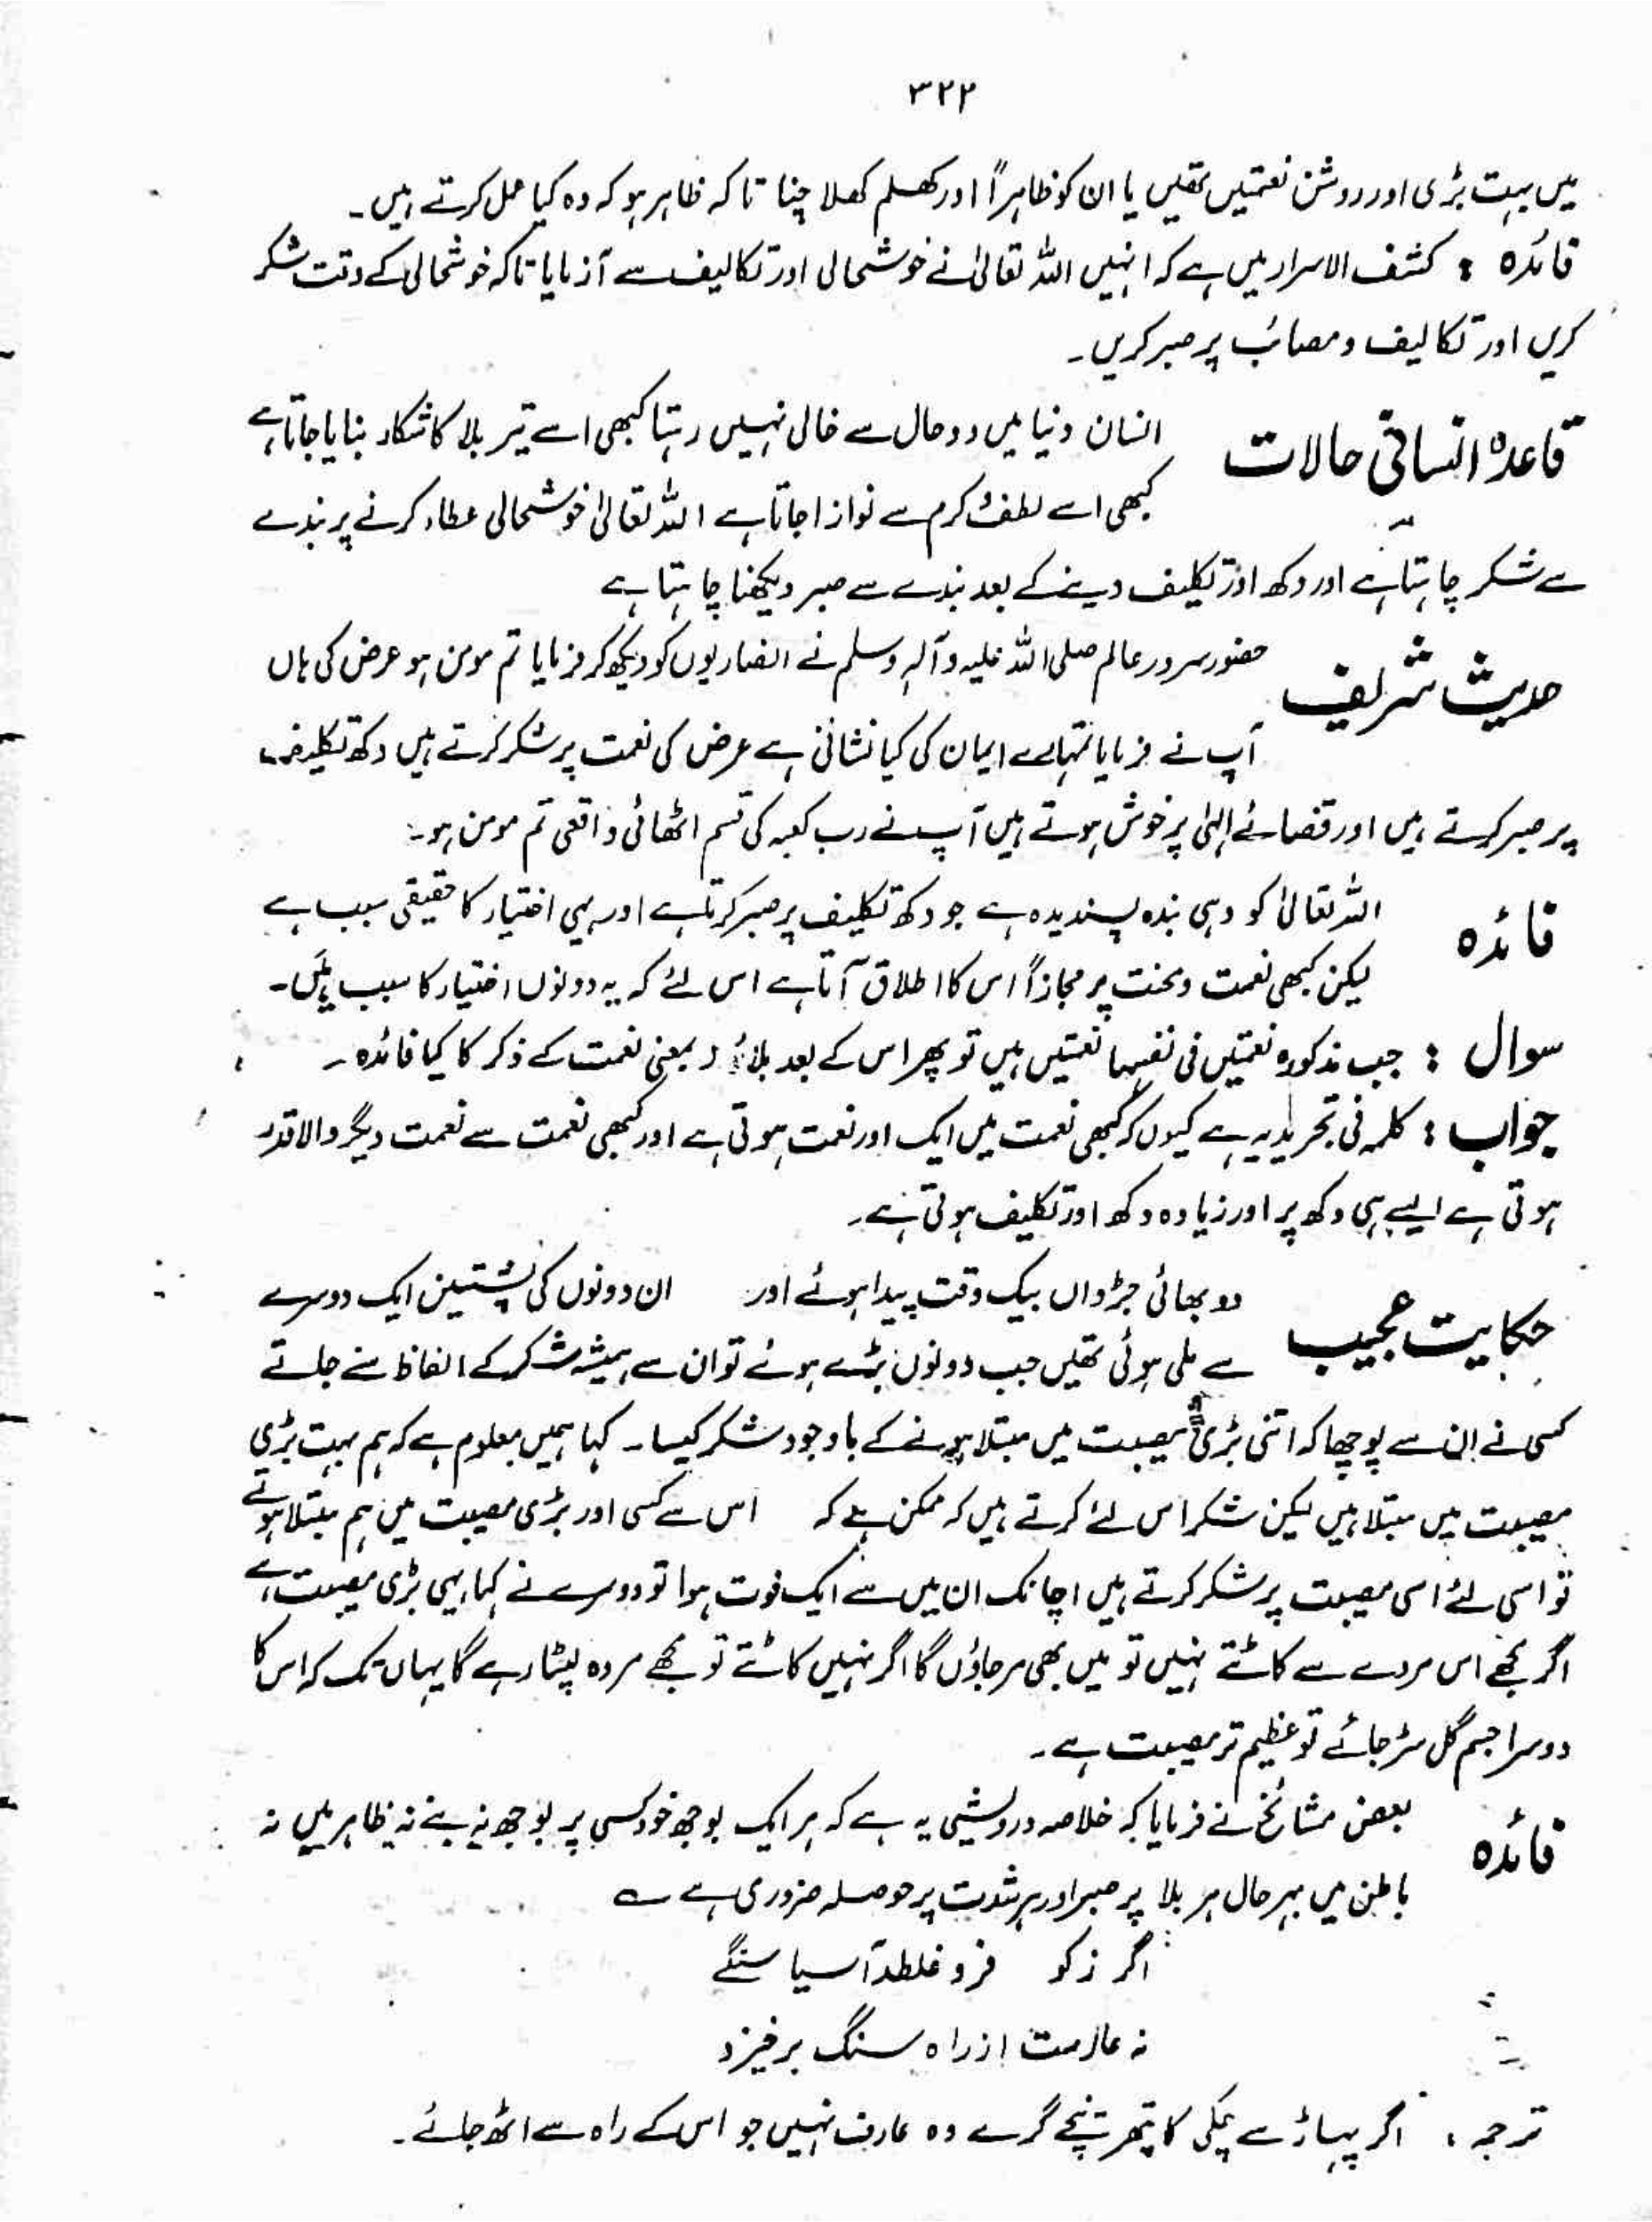 ۳۲۲
میں بہت بڑی اور روشن نعمتیں تھیں یا ان کو ظاہراً اور کھلم کھلا چنا تاکہ ظاہر ہو کہ وہ کیا عمل کرتے ہیں۔
فائدہ : کشف الاسرار میں ہے کہ انہیں اللہ تعالیٰ نے خوشحالی اور تکالیف سے آزمایا تاکہ خوشحالی کے وقت شکر
کریں اور تکالیف و مصائب پر صبر کریں۔
قاعدہ انسانی حالات انسان دنیا میں دو حال سے خالی نہیں رہتا کبھی اسے تیر بلا کا شکار بنایا جاتا ہے
کبھی اسے لطف و کرم سے نوازا جاتا ہے اللہ تعالیٰ خوشحالی عطاء کرنے پر بندے
سے شکر چاہتا ہے اور دکھ اور تکلیف دینے کے بعد بندے سے صبر دیکھنا چاہتا ہے
حدیث شریف حضور سرور عالم صلی اللہ علیہ وآلہ وسلم نے انصاریوں کو دیکھ کر فرمایا تم مومن ہو عرض کی ہاں
آپ نے فرمایا تمہارے ایمان کی کیا نشانی ہے عرض کی نعمت پر شکر کرتے ہیں دکھ تکلیف
پر صبر کرتے ہیں اور قضائے الہٰی پر خوش ہوتے ہیں آپ نے رب کعبہ کی قسم اٹھائی واقعی تم مومن ہو۔
فائدہ اللہ تعالیٰ کو وہی بندہ پسندیدہ ہے جو دکھ تکلیف پر صبر کرتا ہے اور یہی اختیار کا حقیقی سبب ہے
لیکن کبھی نعمت و محنت پر مجازاً اس کا اطلاق آتا ہے اس لئے کہ یہ دونوں اختیار کا سبب ہیں۔
سوال : جب مذکورہ نعمتیں فی نفسہا نعمتیں ہیں تو پھر اس کے بعد بلاء بمعنی نعمت کے ذکر کا کیا فائدہ۔
جواب : کلمہ فی تجریدیہ ہے کیوں کہ کبھی نعمت میں ایک اور نعمت ہوتی ہے اور کبھی نعمت سے نعمت دیگر والا قدر
ہوتی ہے ایسے ہی دکھ پر اور زیادہ دکھ اور تکلیف ہوتی ہے۔
حکایت عجیب دو بھائی جڑواں بیک وقت پیدا ہوئے اور ان دونوں کی پشتیں ایک دوسرے
سے ملی ہوئی تھیں جب دونوں بڑے ہوئے تو ان سے ہمیشہ شکر کے الفاظ سنے جاتے
کسی نے ان سے پوچھا کہ اتنی بڑی مصیبت میں مبتلا ہونے کے باوجود شکر کیسا۔ کہا ہمیں معلوم ہے کہ ہم بہت بڑی
مصیبت میں مبتلا ہیں لیکن شکر اس لئے کرتے ہیں کہ ممکن ہے کہ اس سے کسی اور بڑی مصیبت میں ہم مبتلا ہوتے
تو اسی لئے اسی مصیبت پر شکر کرتے ہیں اچانک ان میں سے ایک فوت ہوا تو دوسرے نے کہا یہی بڑی مصیبت ہے
اگر مجھے اس مردے سے کاٹتے نہیں تو میں بھی مر جاؤں گا اگر نہیں کاٹتے تو مجھے مردہ لپٹا رہے گا یہاں تک کہ اس کا
دوسرا جسم گل سڑ جائے تو عظیم تر مصیبت ہے۔
فائدہ بعض مشائخ نے فرمایا کہ خلاصہ درویشی یہ ہے کہ ہر ایک بوجھ خود کسی پر بوجھ نہ بنے نہ ظاہر میں نہ
باطن میں بہرحال ہر بلا پر صبر اور ہر شدت پر حوصلہ ضروری ہے ؎
اگر ز کو فرو غلطد آسیا سنگے
نہ عارفست از راہ سنگ برخیزد
ترجمہ : اگر پہاڑ سے چکی کا پتھر نیچے گرے وہ عارف نہیں جو اس کے راہ سے اٹھ جائے۔